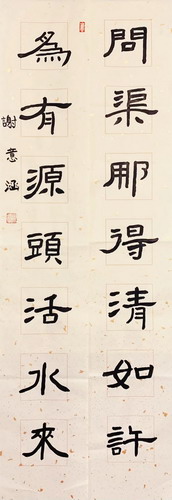 問渠那得清如許
為有源頭活水來
謝意涵